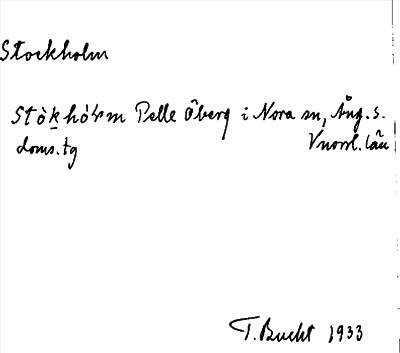 Stockholm
Stòḵhó'ɫm Pelle Öberg i Nora sn, Ång. s.
doms. tg Vnorrl. län
T. Bucht 1933